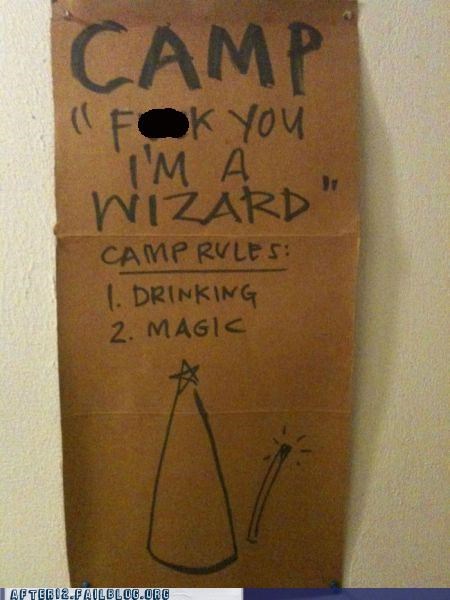 CAMP
"F K YOU
I'M A
WIZARD"
CAMP RULES:
1. DRINKING
2. MAGIC
AFTER12.FAILBLOG.ORG